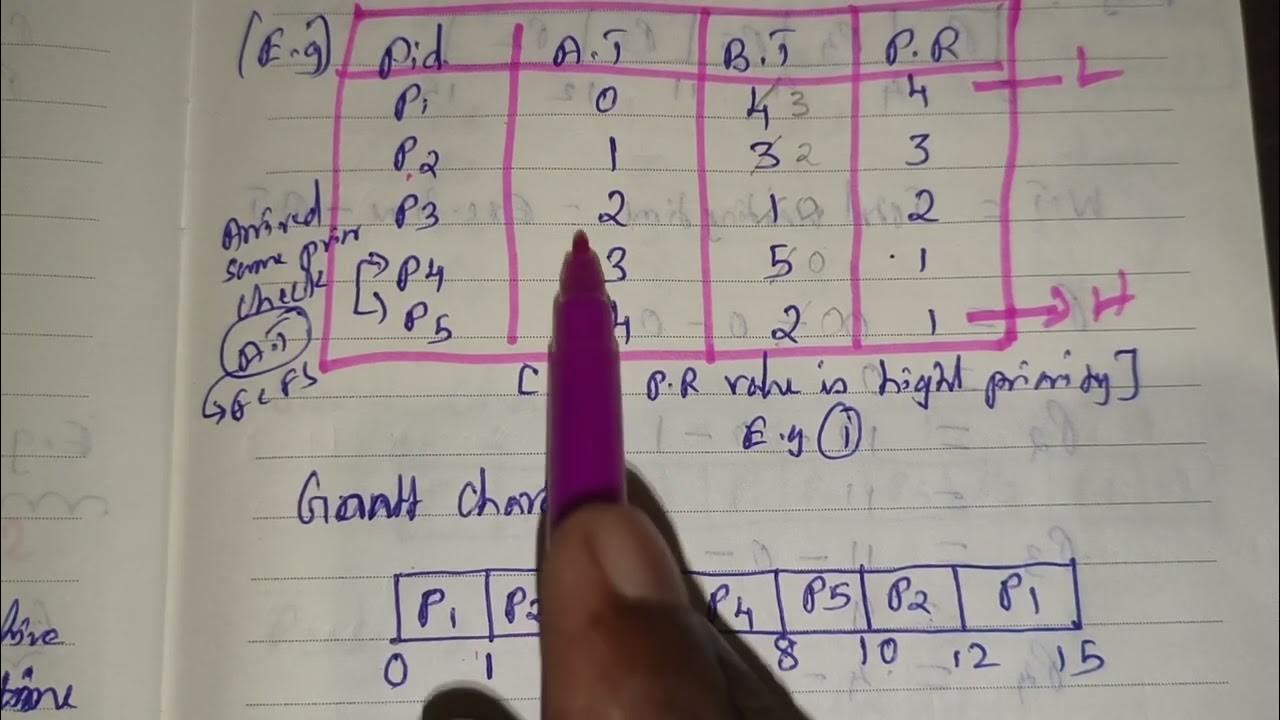 (E.g) P.id A.T B.T P.R
P1 0 4 3 4 L
P2 1 3 2 3
P3 2 1 0 2
P4 3 5 0 1
P5 4 2 0 1 H
Arrived
same prior
check
A.T
FCFS
[ P.R value is hight priority]
E.g 1
Gantt Char
P1 P2 P4 P5 P2 P1
0 1 8 10 12 15